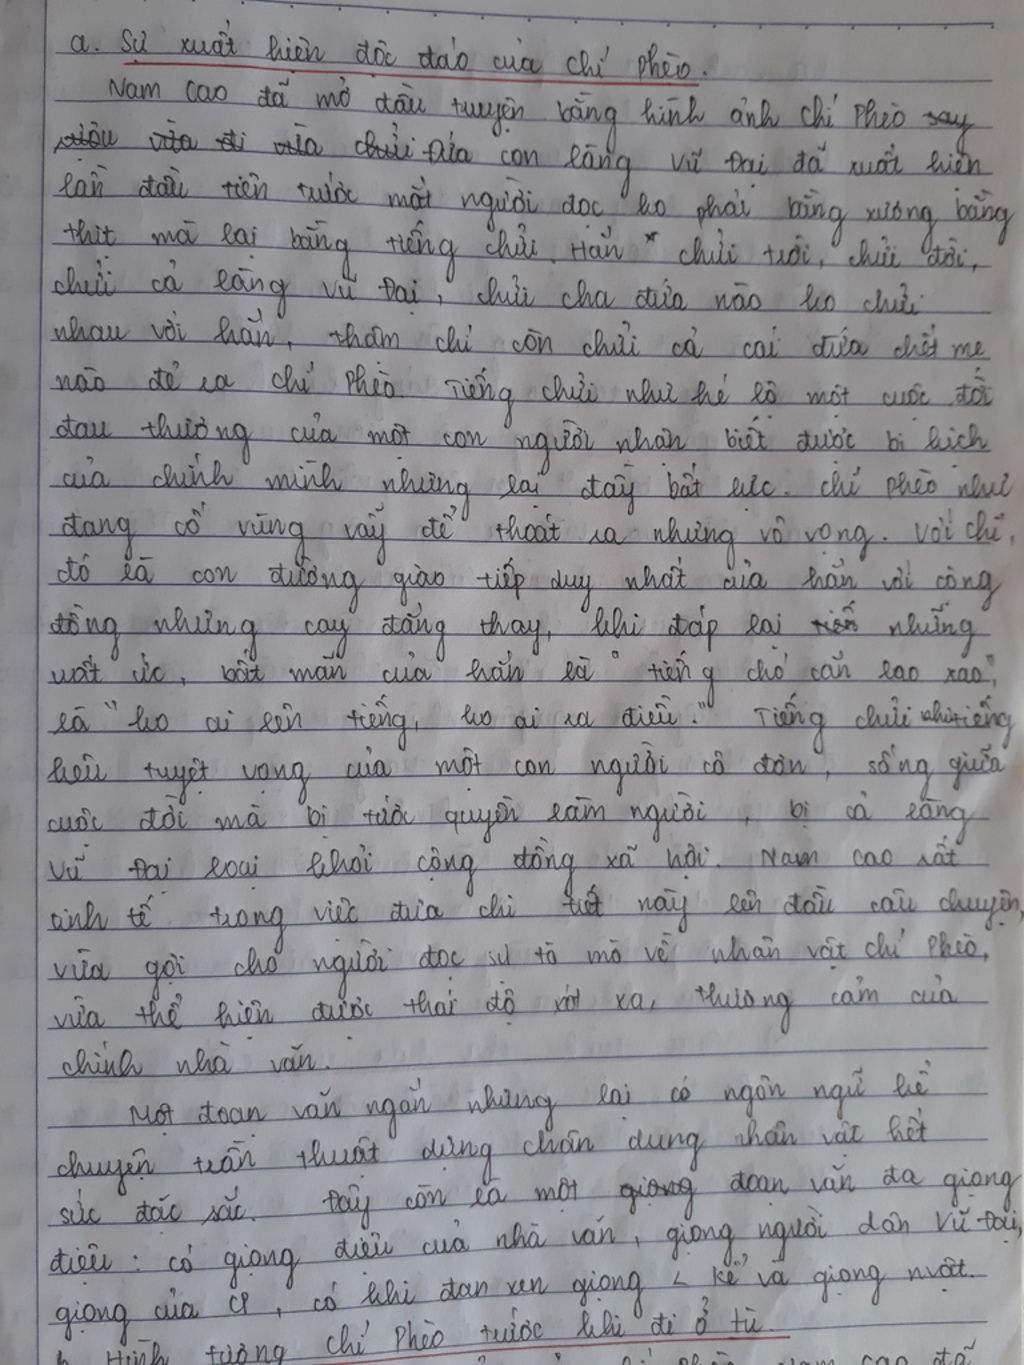 a. Sự xuất hiện độc đáo của Chí Phèo.
Nam Cao đã mở đầu truyện bằng hình ảnh Chí Phèo say
rượu vừa đi vừa chửi Đứa con làng Vũ Đại đã xuất hiện
lần đầu tiên trước mắt người đọc ko phải bằng xương bằng
thịt mà lại bằng tiếng chửi. Hắn " chửi trời, chửi đời,
chửi cả làng Vũ Đại, chửi cha đứa nào ko chửi
nhau với hắn, thậm chí còn chửi cả cái đứa chết mẹ
nào đẻ ra Chí Phèo. Tiếng chửi như hé lộ một cuộc đời
đau thương của một con người nhận biết được bi kịch
của chính mình nhưng lại đầy bất lực. Chí Phèo như
đang cố vùng vẫy để thoát ra nhưng vô vọng. Với Chí,
đó là con đường giao tiếp duy nhất của hắn với cộng
đồng nhưng cay đắng thay, khi đáp lại tiến những
uất ức, bất mãn của hắn là " tiếng chó cắn lao xao",
là " ko ai lên tiếng, ko ai ra điều." Tiếng chửi như tiếng
kêu tuyệt vọng của một con người cô đơn, sống giữa
cuộc đời mà bị tước quyền làm người, bị cả làng
Vũ Đại loại khỏi cộng đồng xã hội. Nam Cao rất
tinh tế trong việc đưa chi tiết này lên đầu câu chuyện,
vừa gợi cho người đọc sự tò mò về nhân vật Chí Phèo,
vừa thể hiện được thái độ xót xa, thương cảm của
chính nhà văn.
Một đoạn văn ngắn nhưng lại có ngôn ngữ kể
chuyện trần thuật dựng chân dung nhân vật hết
sức đặc sắc. Đây còn là một giọng đoạn văn đa giọng
điệu: có giọng điệu của nhà văn, giọng người dân Vũ Đại,
giọng của CP, có khi đan xen giọng < kể và giọng nvật.
b. Hình tượng Chí Phèo trước khi đi ở tù.